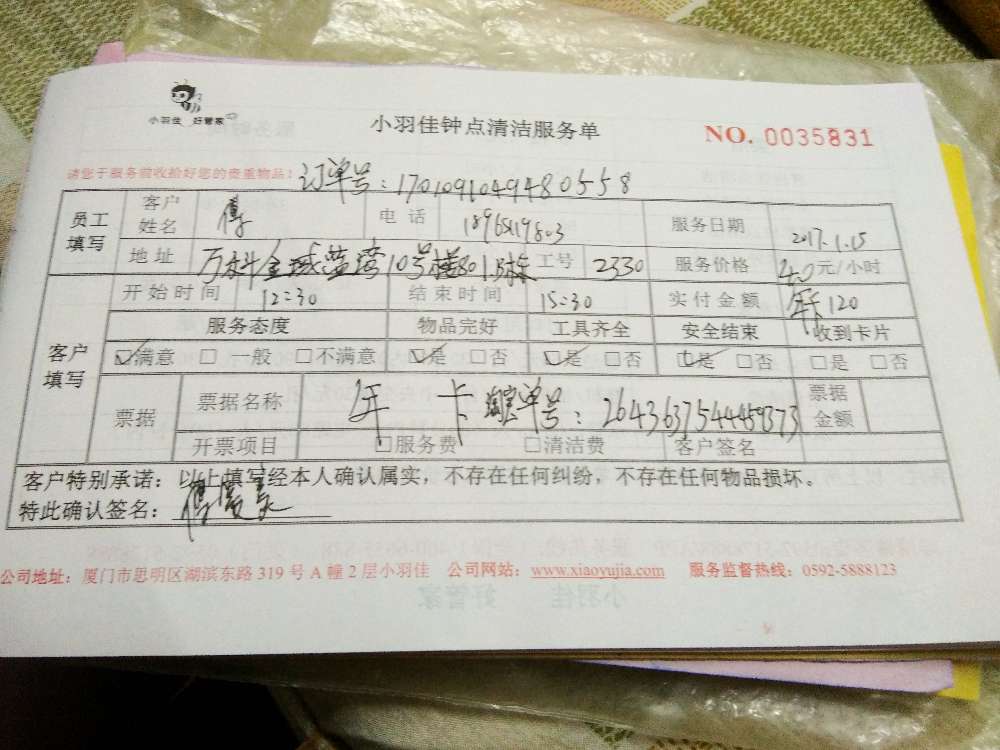 小羽佳 好管家
小羽佳钟点清洁服务单
NO. 0035831
请您于服务前收拾好您的贵重物品！ 订单号：1701091049480558
员工填写 客户姓名 傅 电话 服务日期 2017.1.15
地址 万科金域蓝湾10号楼801 工号 2330 服务价格 40元/小时
客户填写 开始时间 12:30 结束时间 15:30 实付金额 年卡120
服务态度 物品完好 工具齐全 安全结束 收到卡片
☑满意 □一般 □不满意 ☑是 □否 ☑是 □否 ☑是 □否 □是 □否
票据 票据名称 年卡 淘宝单号： 票据金额
开票项目 □服务费 □清洁费 客户签名
客户特别承诺：以上填写经本人确认属实，不存在任何纠纷，不存在任何物品损坏。
特此确认签名：傅
公司地址：厦门市思明区湖滨东路 319 号 A 幢 2 层小羽佳 公司网站：www.xiaoyujia.com 服务监督热线：0592-5888123